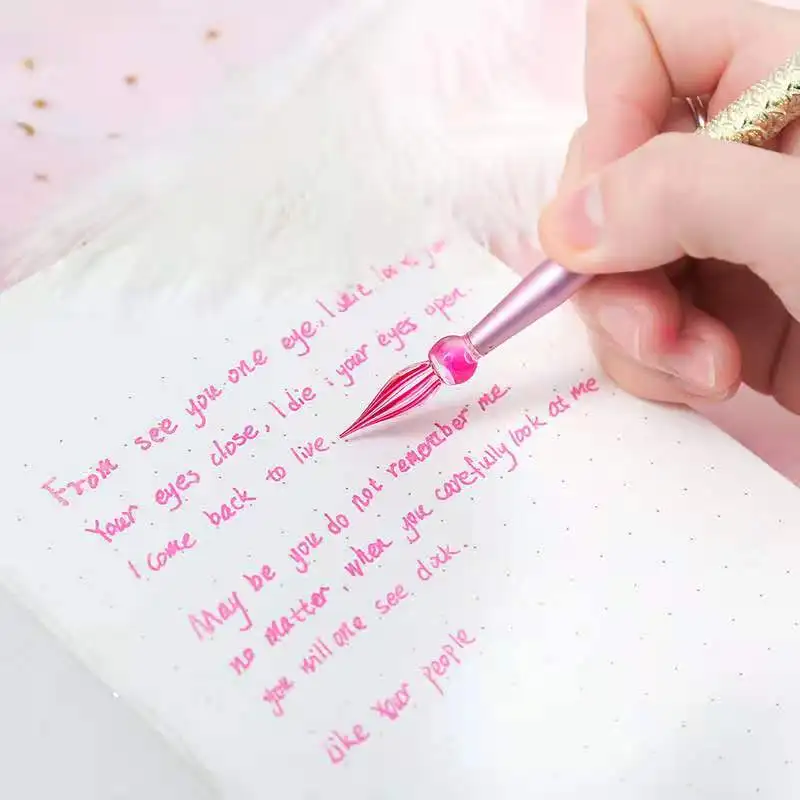 From see you one eye, I die look you
Your eyes close, I die i your eyes open.
I come back to live.
May be you do not remember me.
no matter, when you carefully look at me
you will one see dock.
Like Your people